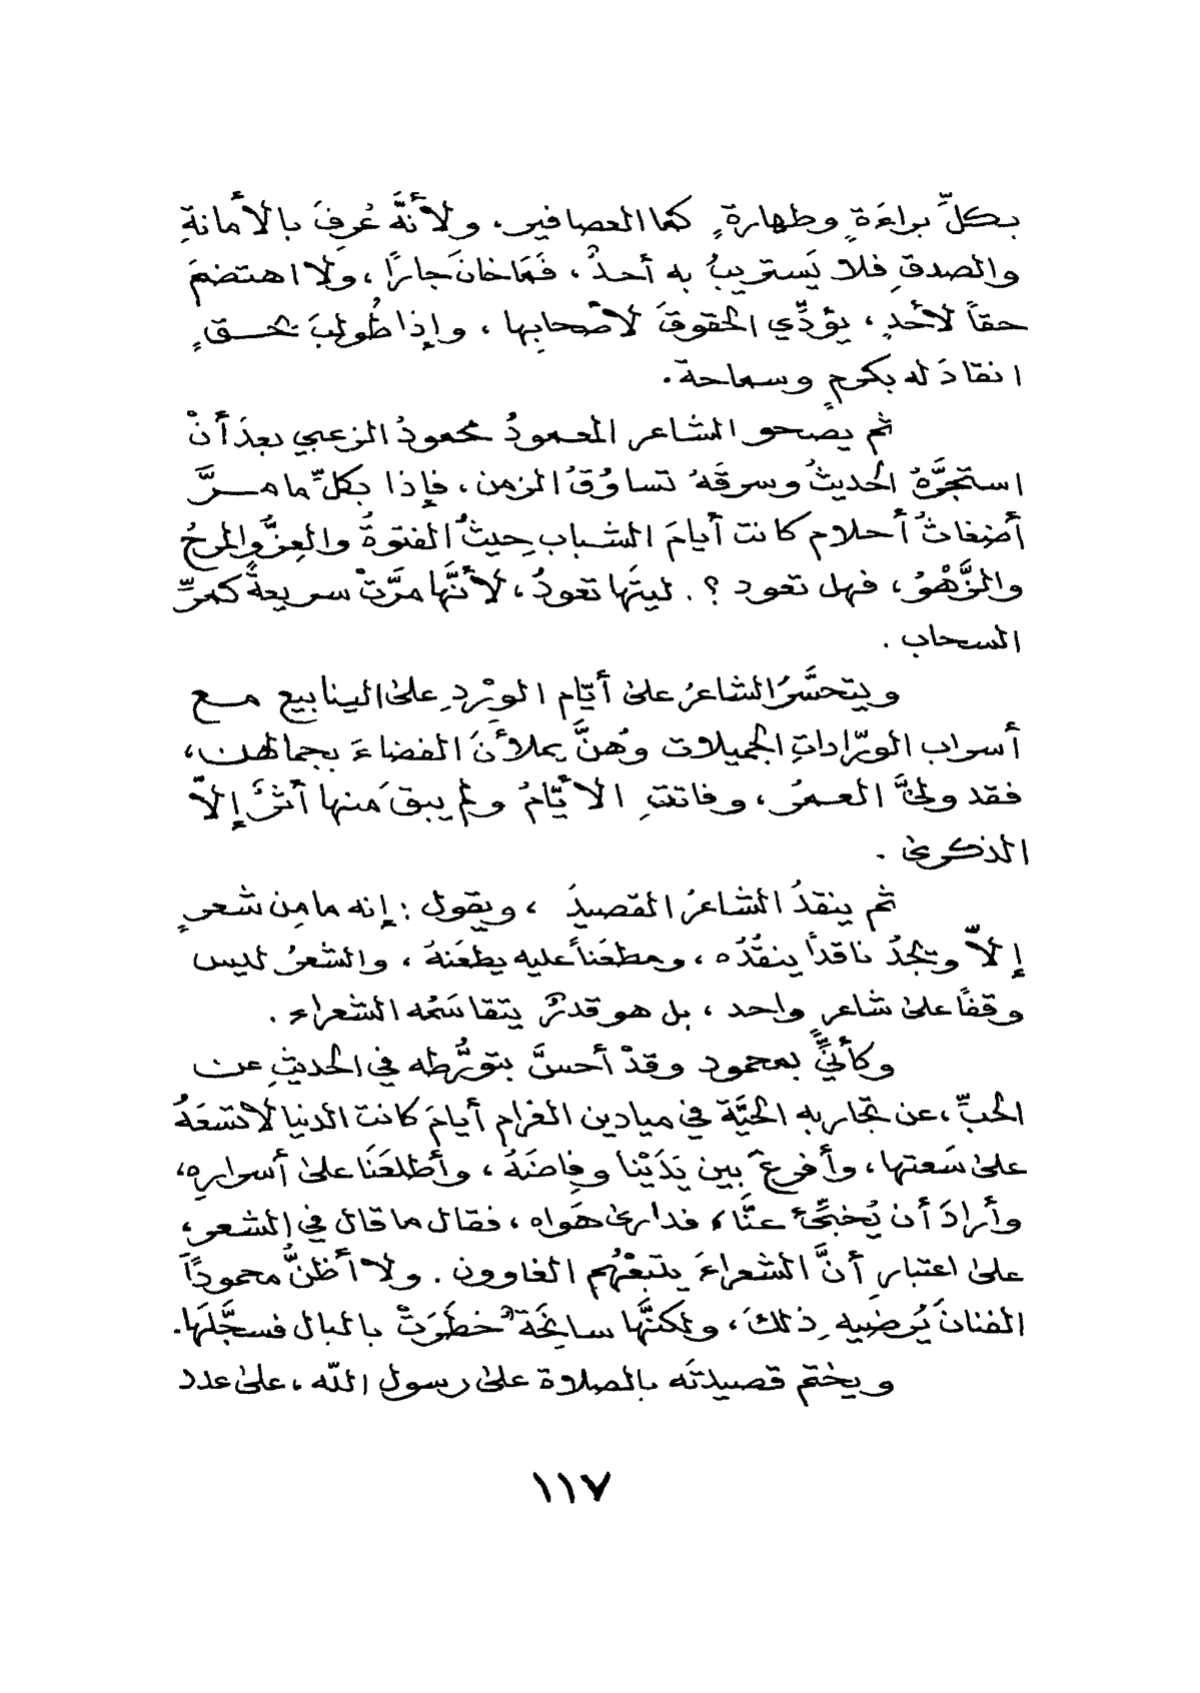 بكلِّ براءَةٍ وطهارةٍ كما العصافير، ولأنَّه عُرِفَ بالأمانةِ
والصدقِ فلا يَستريبُ به أحدٌ، فَمَا خانَ جاراً، ولا اهتضمَ
حقاً لأحدٍ، يؤدِّي الحقوقَ لأصحابِها، وإذا طُولبَ بحــقٍ
انقادَ له بكرمٍ وسماحة.
ثم يصحو الشاعر المعمودُ محمودُ الزعبي بعدَ أنْ
استجرَّهُ الحديثُ وسرقَهُ تساوُقُ الزمن، فإذا بكلِّ ما مــرَّ
أضغاثُ أحلام كانت أيامَ الشباب حيثُ الفتوةُ والعِزُّ والمرحُ
والزَّهْوُ، فهل تعود ؟. ليتَها تعودُ، لأنَّها مرَّتْ سريعةً كمرِّ
السحاب .
ويتحسَّرُ الشاعرُ على أيّام الوِرْدِ على الينابيع مــع
أسراب الورّاداتِ الجميلات وهُنَّ يملأْنَ الفضاءَ بجمالهن،
فقد ولَّى العمرُ، وفاتتِ الأيّامُ ولم يبقَ منها أثرٌ إلاّ
الذكرى .
ثم ينقدُ الشاعرُ القصيدَ ، ويقول : إنه ما مِن شعرٍ
إلاّ وتجدُ ناقداً ينقُدُه ، ومطعَناً عليه يطعَنهُ ، والشعرُ ليس
وقفاً على شاعرٍ واحد ، بل هو قدرٌ يتقاسَمُه الشعراء .
وكأنِّي بمحمود وقدْ أحسَّ بتورُّطه في الحديثِ عن
الحبِّ ،عن تجاربه الحيَّة في ميادين الغرام أيامَ كانت الدنيا لا تسَعَهُ
على سَعتها، وأفرغَ بين يَدَيْنا وِفاضَهُ ، وأطلعَنَا على أسرارِهِ،
وأرادَ أن يُخبِّئَ عنَّا، فدارى هَواه ، فقال ما قال في الشعرِ،
على اعتبارِ أنَّ الشعراءَ يتبعُهُم الغاوون . ولا أظنُّ محموداً
الفنانَ يُرضيهِ ذلكَ، ولكنَّها سانحَةٌ خطَرَتْ بالبال فسجَّلَها.
ويختم قصيدتَه بالصلاة على رسول الله ، على عدد
١١٧